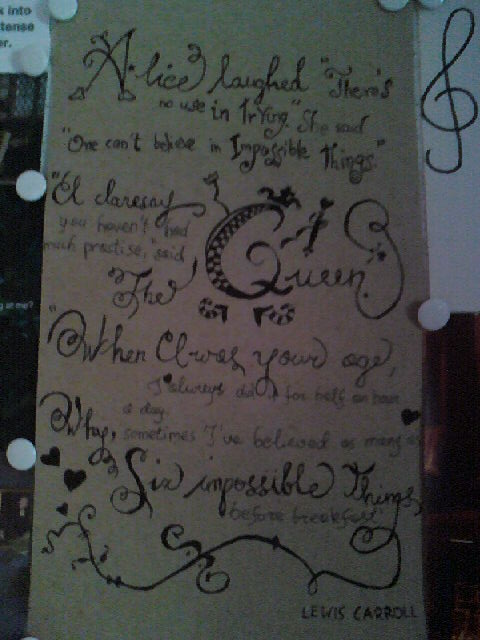 k into
ntense
er.
Alice laughed "There's
no use in trying." She said
"One can't believe in Impossible Things."
"I daresay
you haven't had
much practise," said
The Queen
"When I was your age,
I always did it for half an hour
a day.
Why, sometimes I've believed as many as
Six impossible Things
before breakfast"
LEWIS CARROLL